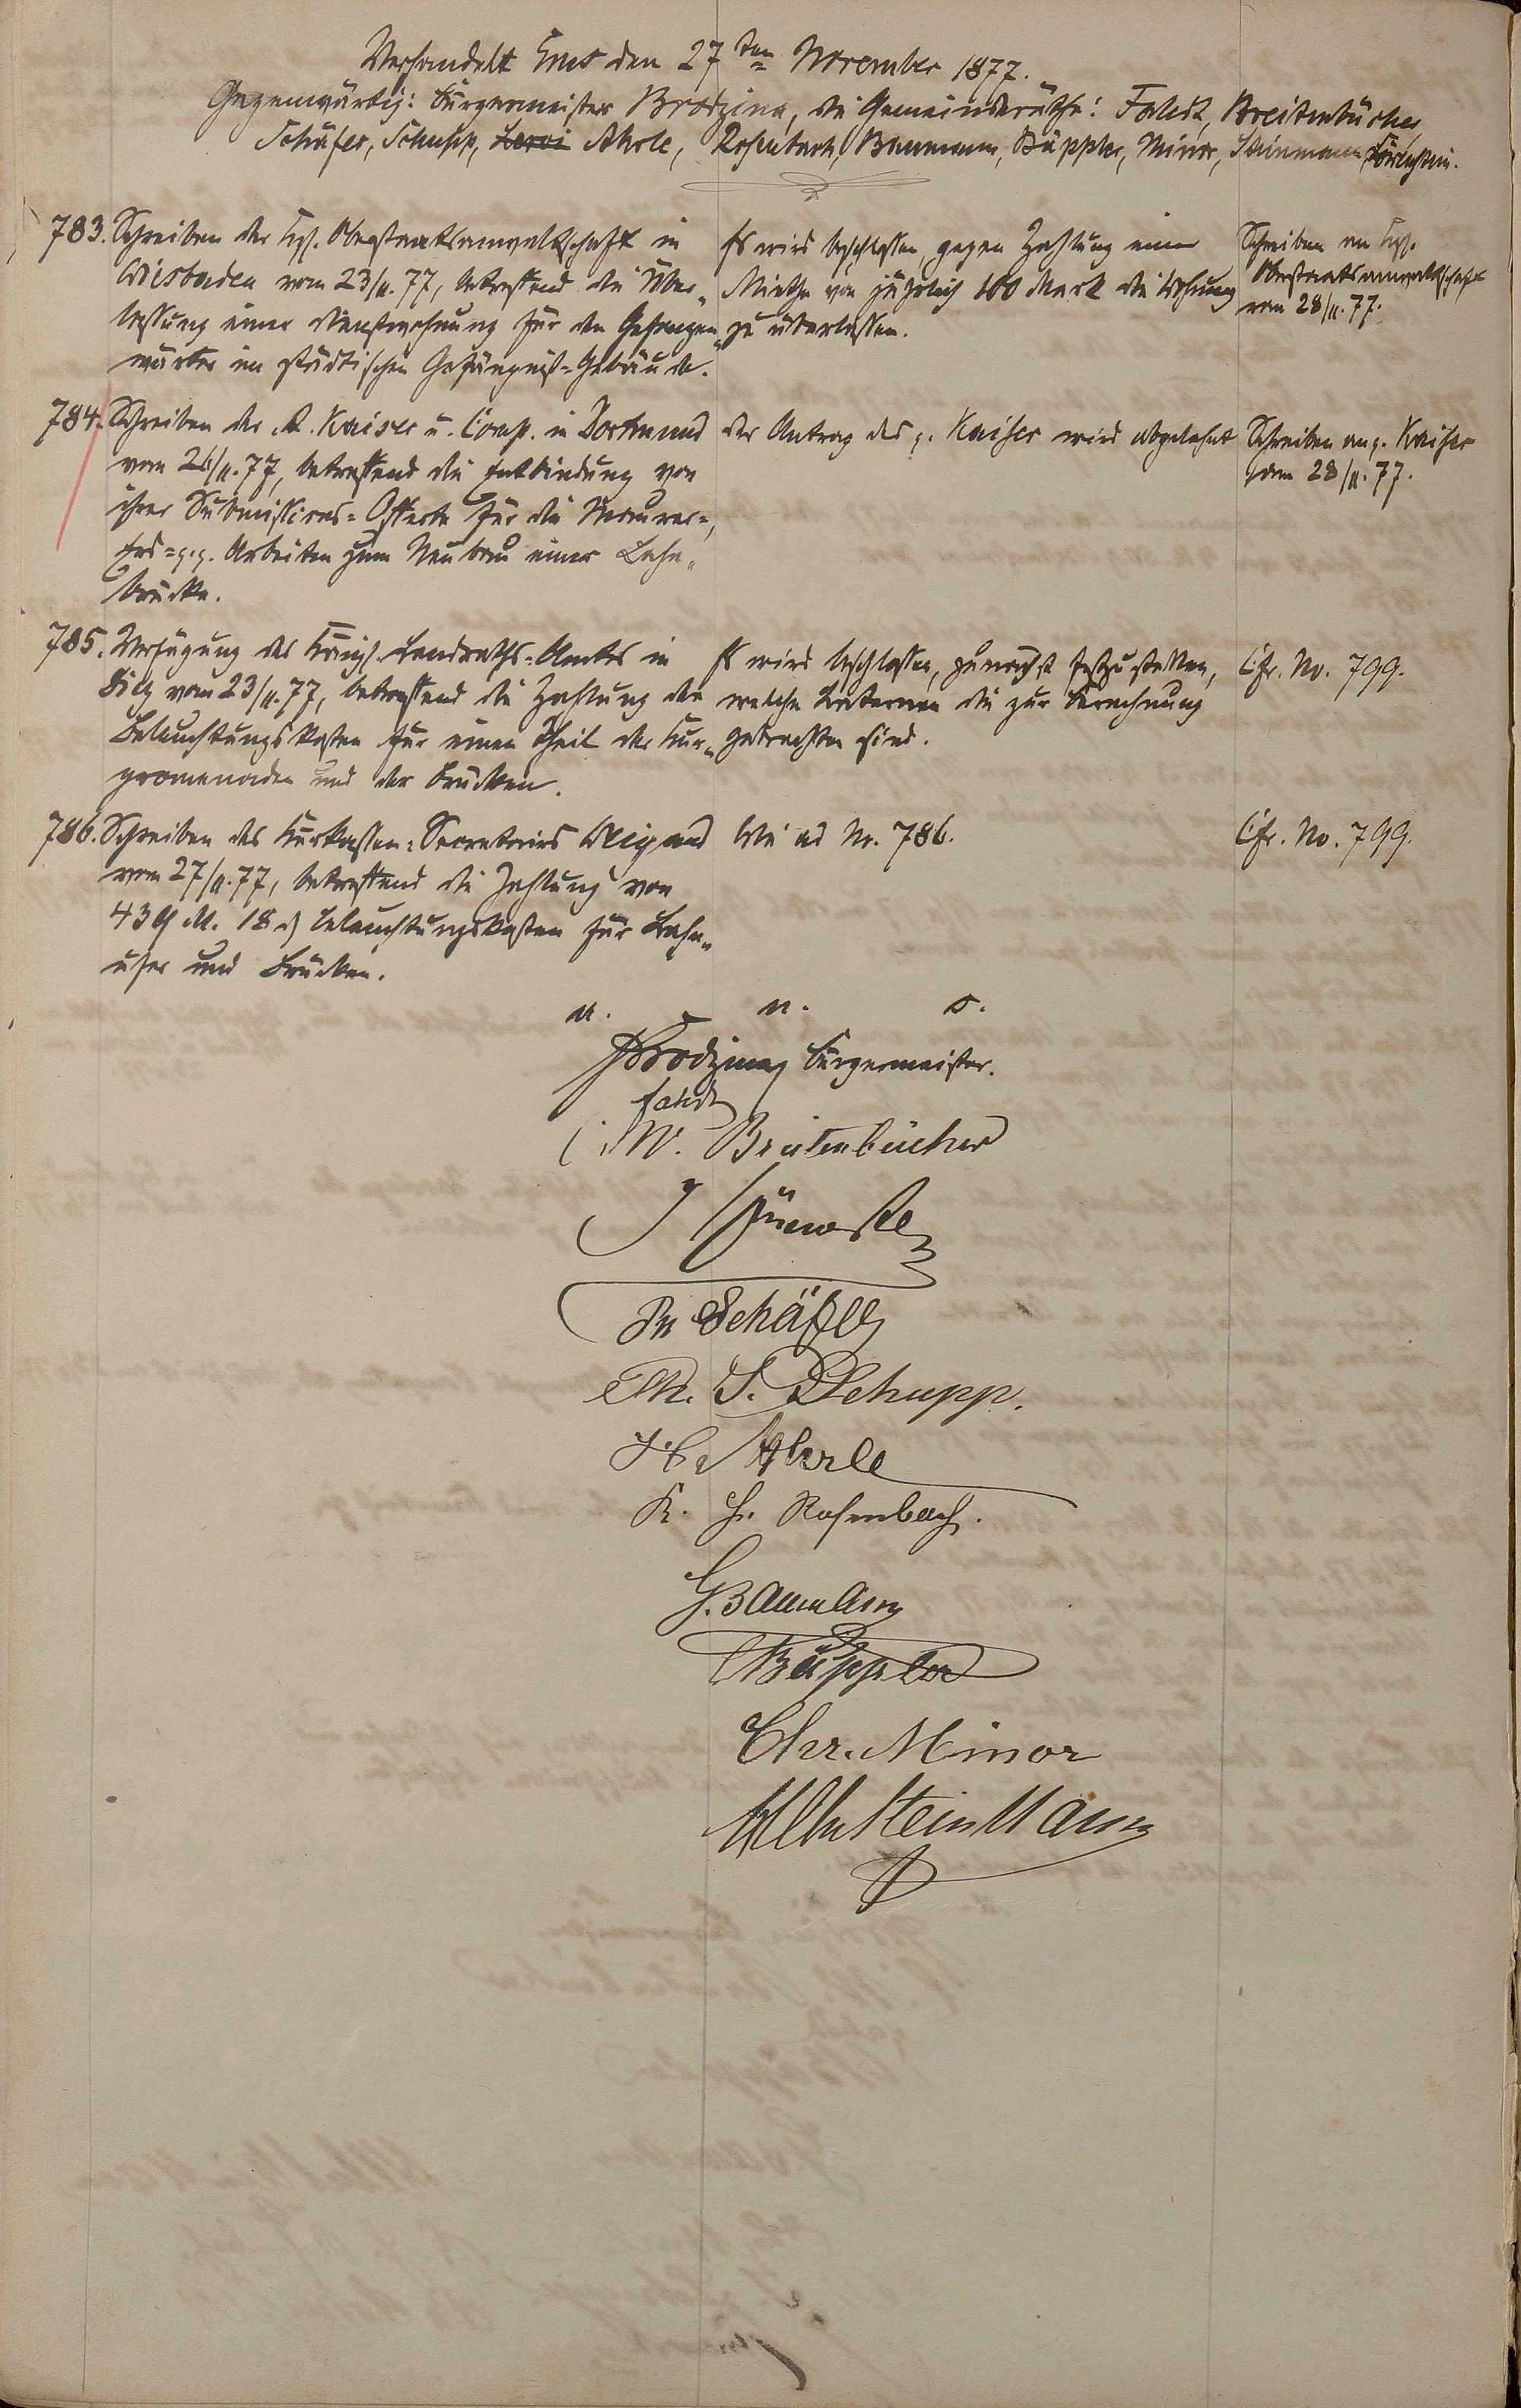 Verhandelt Ems den 27ten November 1877.
Gegenwärtig: Bürgermeister Brodzina, die Gemeinderäthe: Fahdt, Breitenbücher,
Schäfer, Schupp, Leroi Ahrle, Rosenbach, Baumann, Bäppler, Minor, Steinmann,
783. Schreiben der Kgl. Oberstaatsanwaltschaft in
Wiesbaden vom 23/11.77, betreffend die Über„
lassung einer Dienstwohnung für den Gefangen„
wärter im städtischen Gefängniß-Gebäude.
Es wird beschlossen, gegen Zahlung einer
Miethe von jährlich 100 Mark die Wohnung
zu überlassen.
Schreiben an Kgl.
Oberstaatsanwaltschaft
vom 28/11.77.
784. Schreiben der A. Kaiser u. Comp. in Dortmund
vom 26/11.77, betreffend die Entbindung von
ihrer Submissions-Offerte für die Maurer-,
Erd- p.p. Arbeiten zum Neubau einer Lahn„
brücke.
Der Antrag des p. Kaiser wird abgelehnt
Schreiben an p. Kaiser
vom 28/11.77.
785. Verfügung des Königl. Landraths-Amtes in
Diez vom 23/11.77, betreffend die Zahlung der
Beleuchtungskosten für einen Theil der Kur„
promenaden und der Brücken.
Es wird beschlossen, zunächst festzustellen,
welche Laternen die zur Berechnung
gebrachten sind.
Cfr. No. 799.
786. Schreiben des Kurkassen-Secretairs Weigand
vom 27/11.77, betreffend die Zahlung von
439 M. 18 ₰ Beleuchtungskosten für Lahn„
ufer und Brücken.
Wie ad Nr. 786.
Cfr. No. 799.
a. u. s.
Brodzina Bürgermeister.
Fahdt
W. Breitenbücher
Schäfer
Th. S. Schupp.
H. Ahrle
K. H. Rosenbach.
G. Baumann
Bäppler
Chr. Minor
Wilh Steinmann